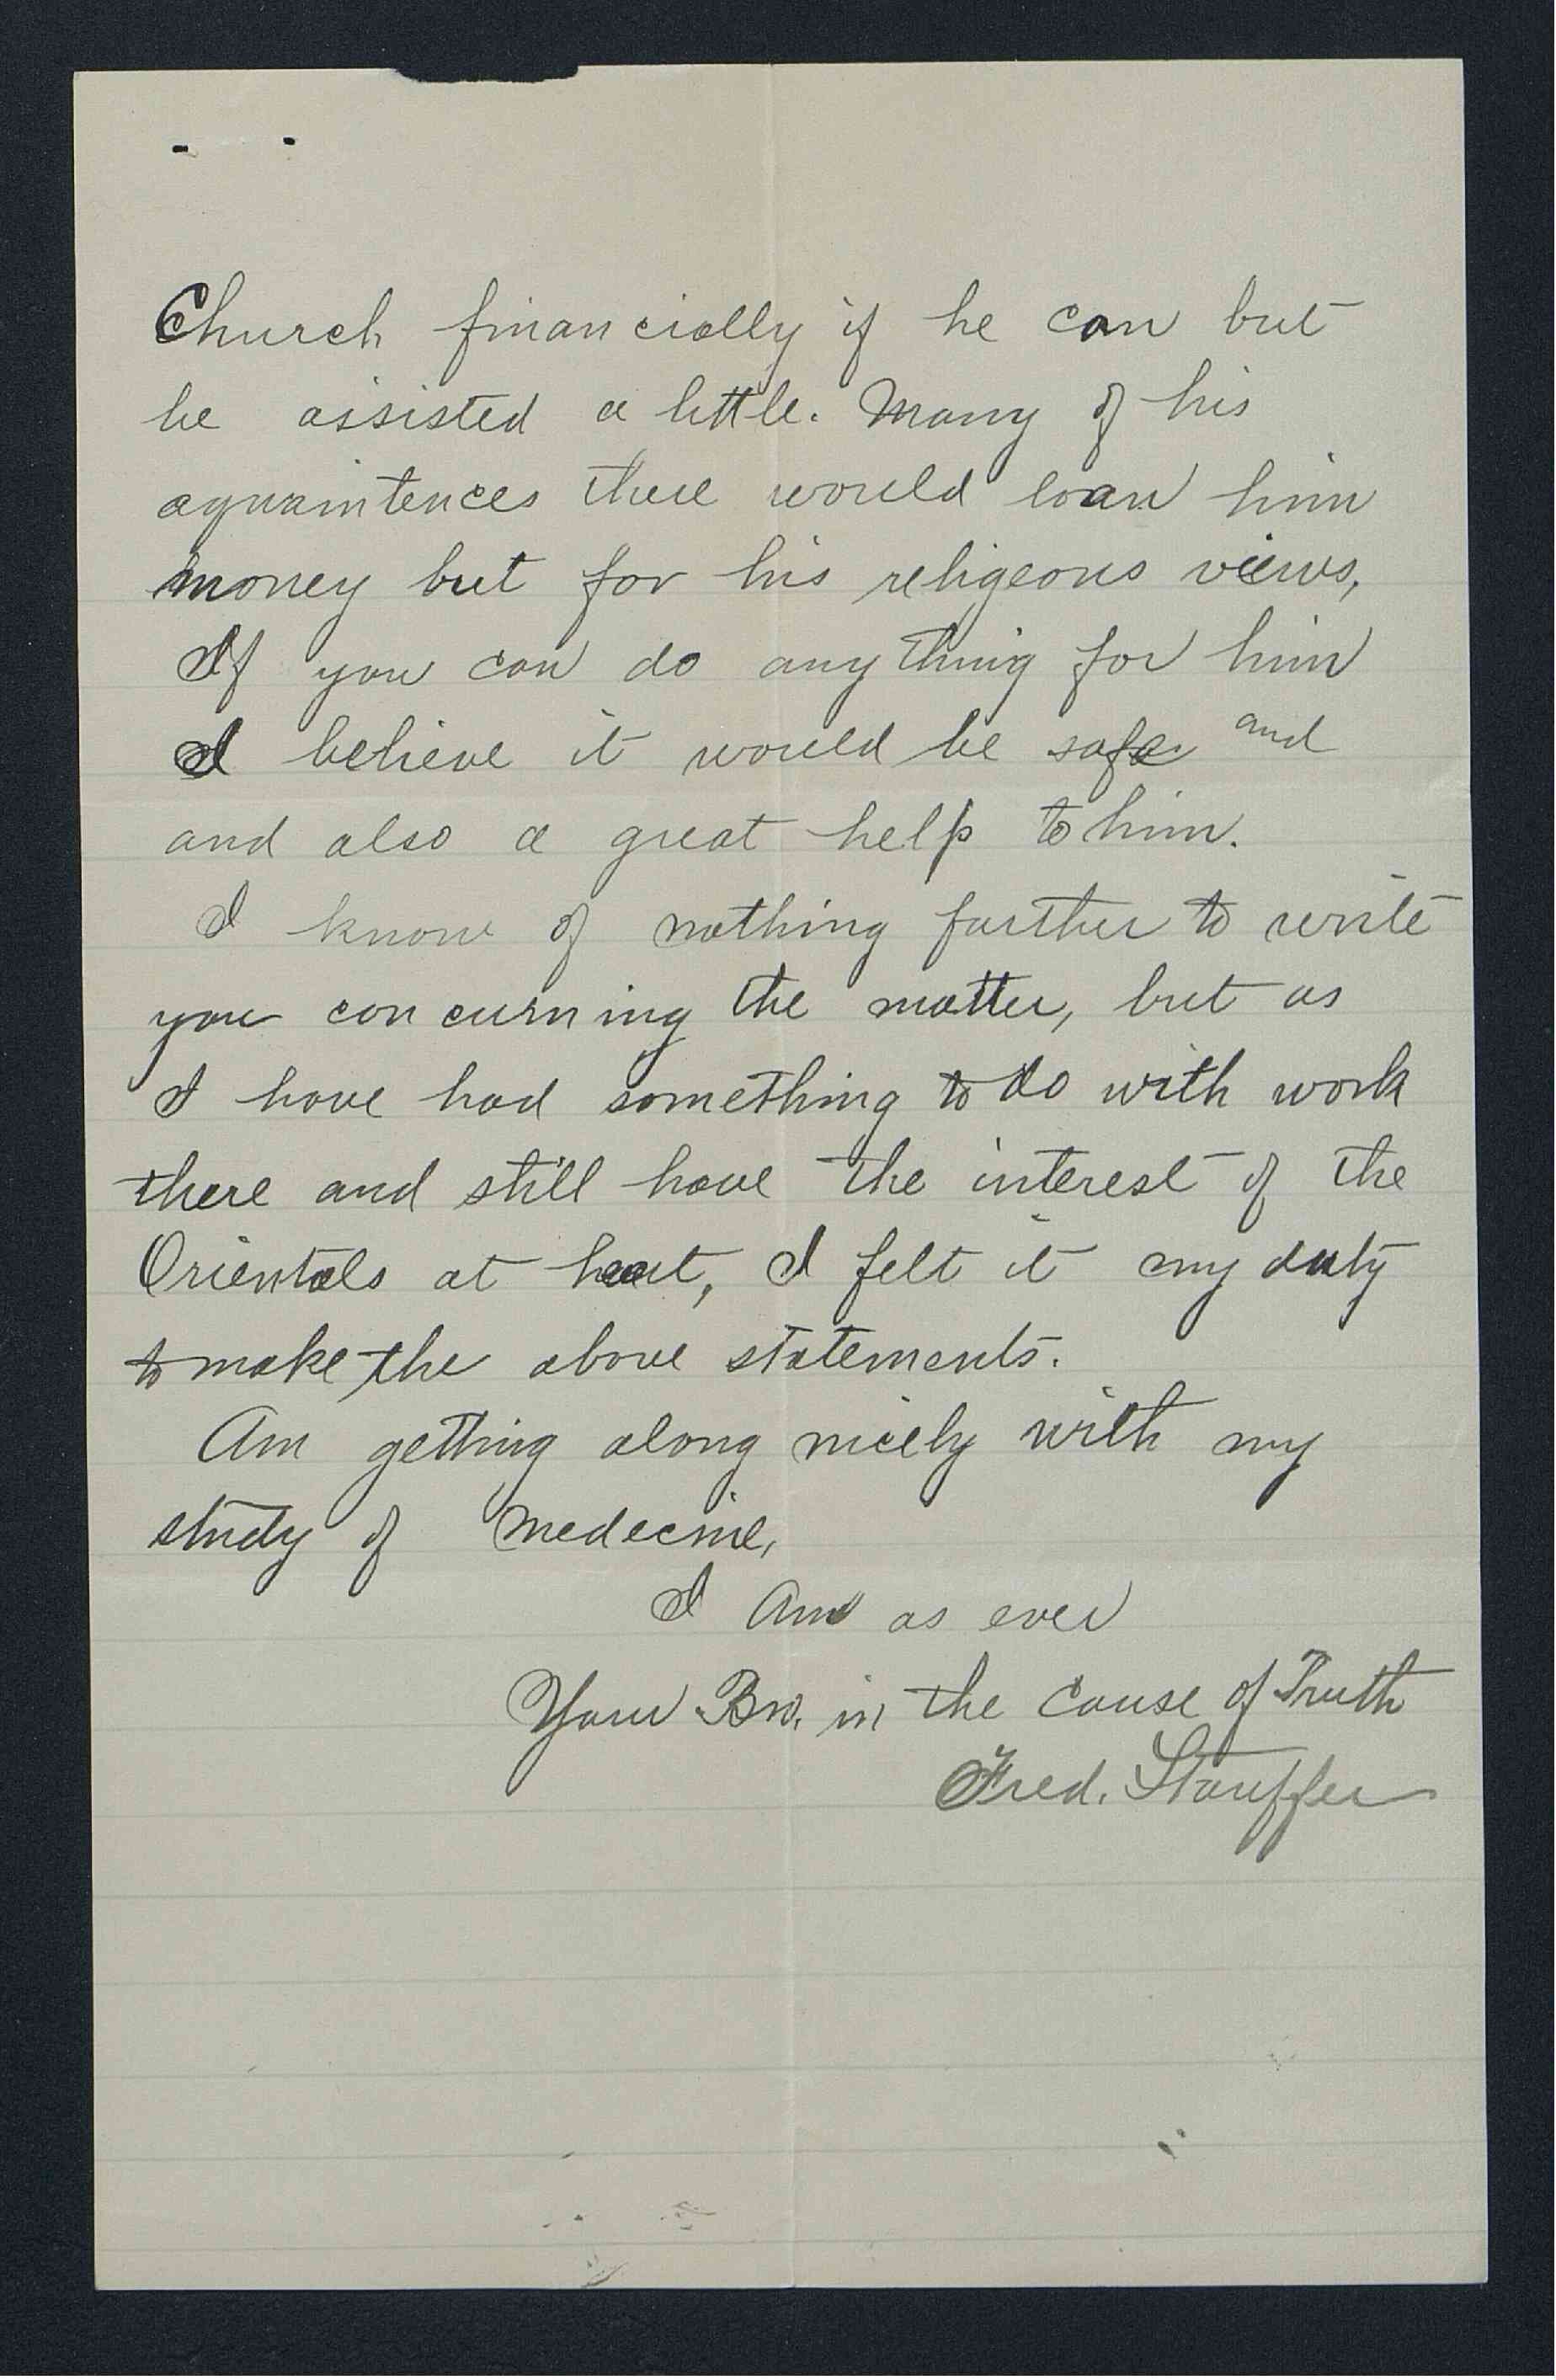 Church financially if he can but
be assisted a little. Many of his
aquaintences there would loan him
money but for his religeous views,
If you can do any thing for him
I believe it would be safe and
and also a great help to him.
I know of nothing further to write
you concurning the matter, but as
I have had something to do with work
there and still have the interest of the
Orientals at heart, I felt it my duty
to make the above statements.
Am getting along nicely with my
study of medecine,
I Am as ever
Your Bro. in the cause of Truth
Fred. Stauffer